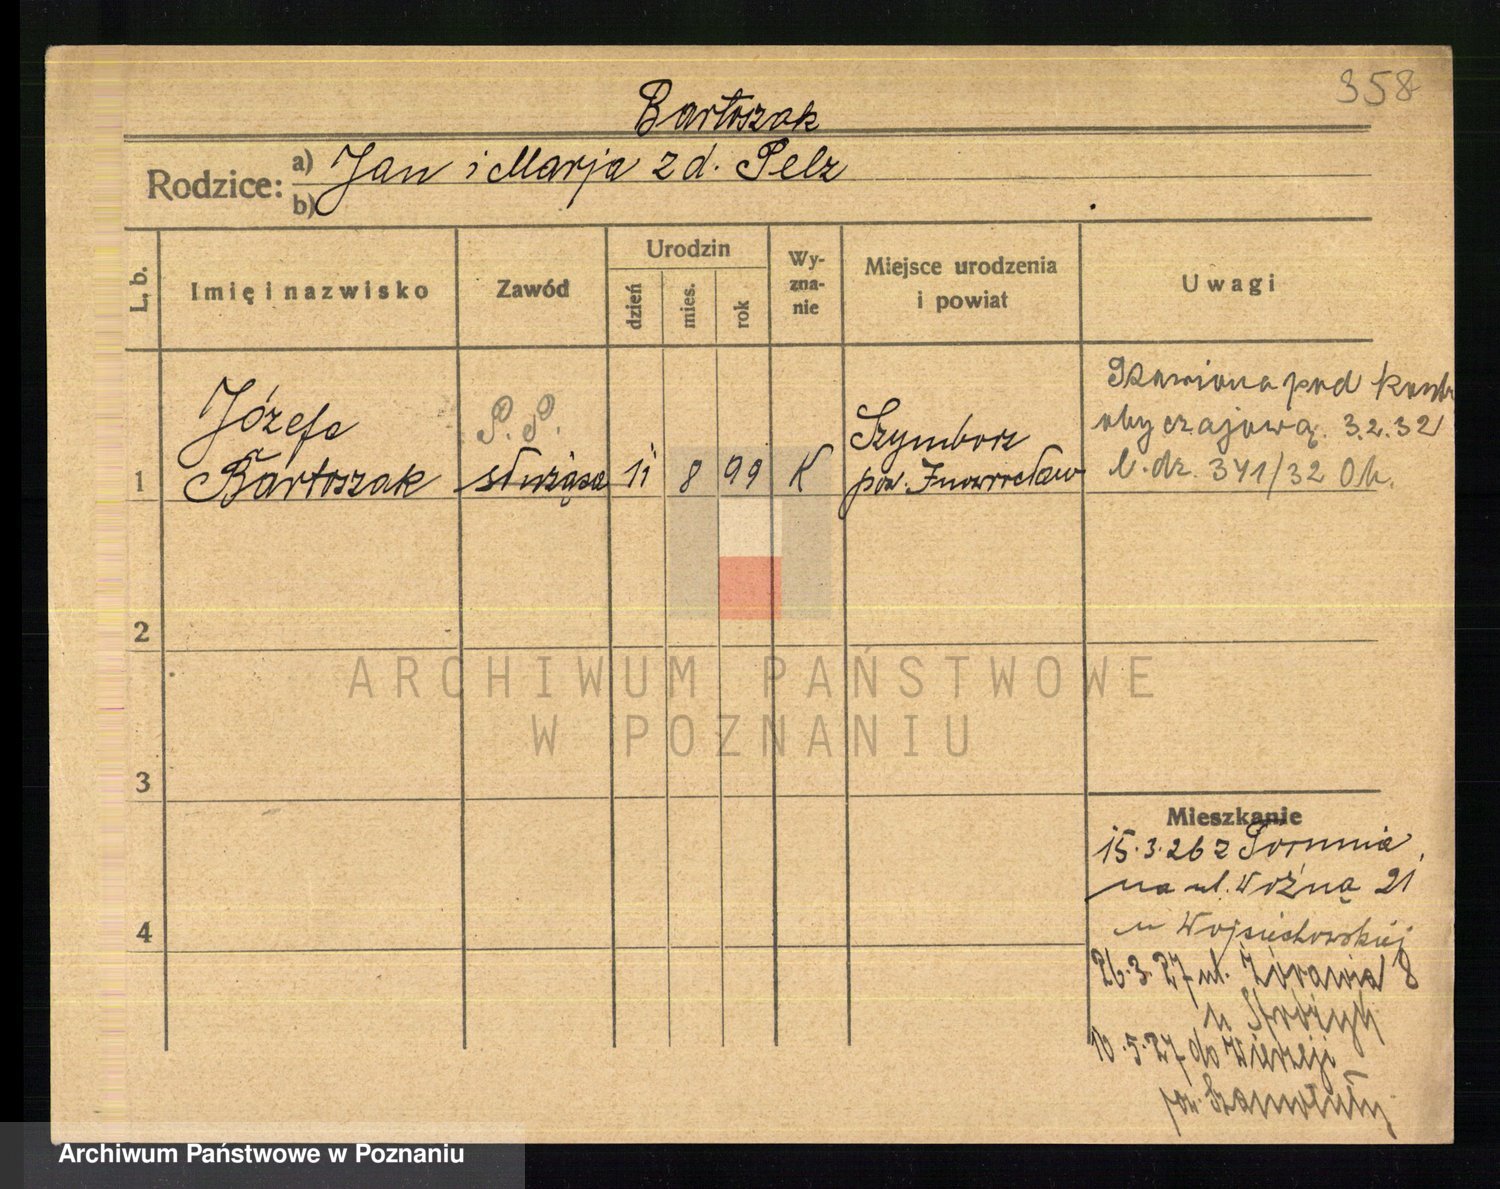 358
Bartoszak
Rodzice: a) Jan i Marja z d. Pelz
b)
L. b.
Imię i nazwisko
Zawód
Urodzin
dzień
mies.
rok
Wy-
zna-
nie
Miejsce urodzenia
i powiat
Uwagi
Józefa
Bartoszak
P. P.
służąca
11
8
99
K
Szymborz
pow. Inowrocław
pod
obyczajową. 3.2.32
l. dz. 341/32 Ob.
1
2
3
4
ARCHIWUM PAŃSTWOWE
W POZNANIU
Mieszkanie
15.3.26 z Torunia
na ul. Woźną 21
u Wojciechowskiej
26.3.27 ul. Żórawia 8
u
10.5.27 do Wierzeji
pow. Szamotuły
Archiwum Państwowe w Poznaniu